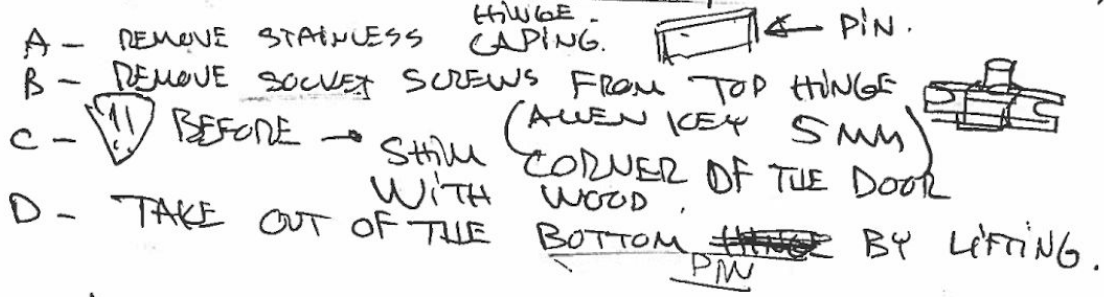 A - REMOVE STAINLESS HINGE CAPING. ← PIN.
B - REMOVE SOCKET SCREWS FROM TOP HINGE
(ALLEN KEY 5MM)
C - !! BEFORE → SHIM CORNER OF THE DOOR
WITH WOOD.
D - TAKE OUT OF THE BOTTOM PIN BY LIFTING.